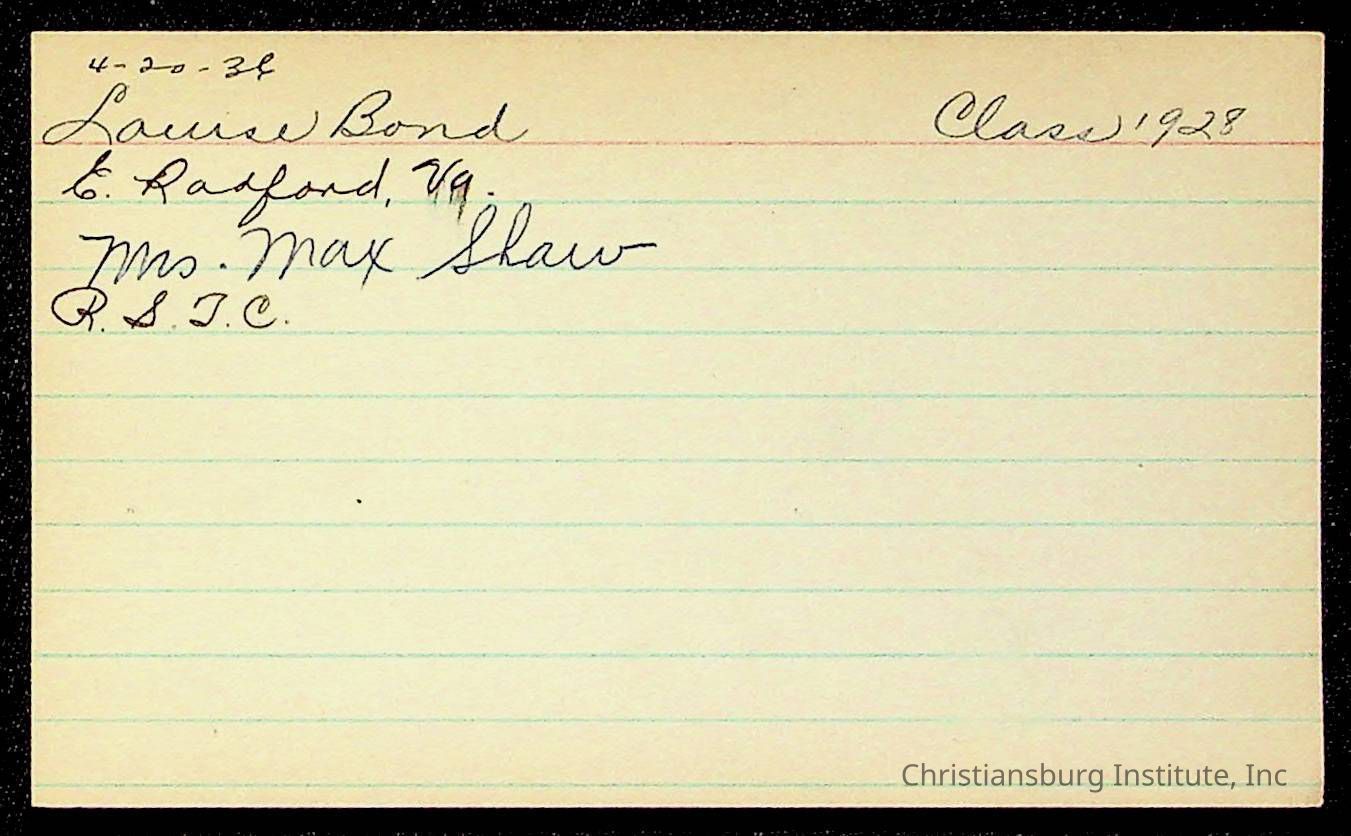 4-20-36
Louise Bond Class 1928
E. Radford, Va.
Mrs. Max Shaw
R. S. T. C.
Christiansburg Institute, Inc